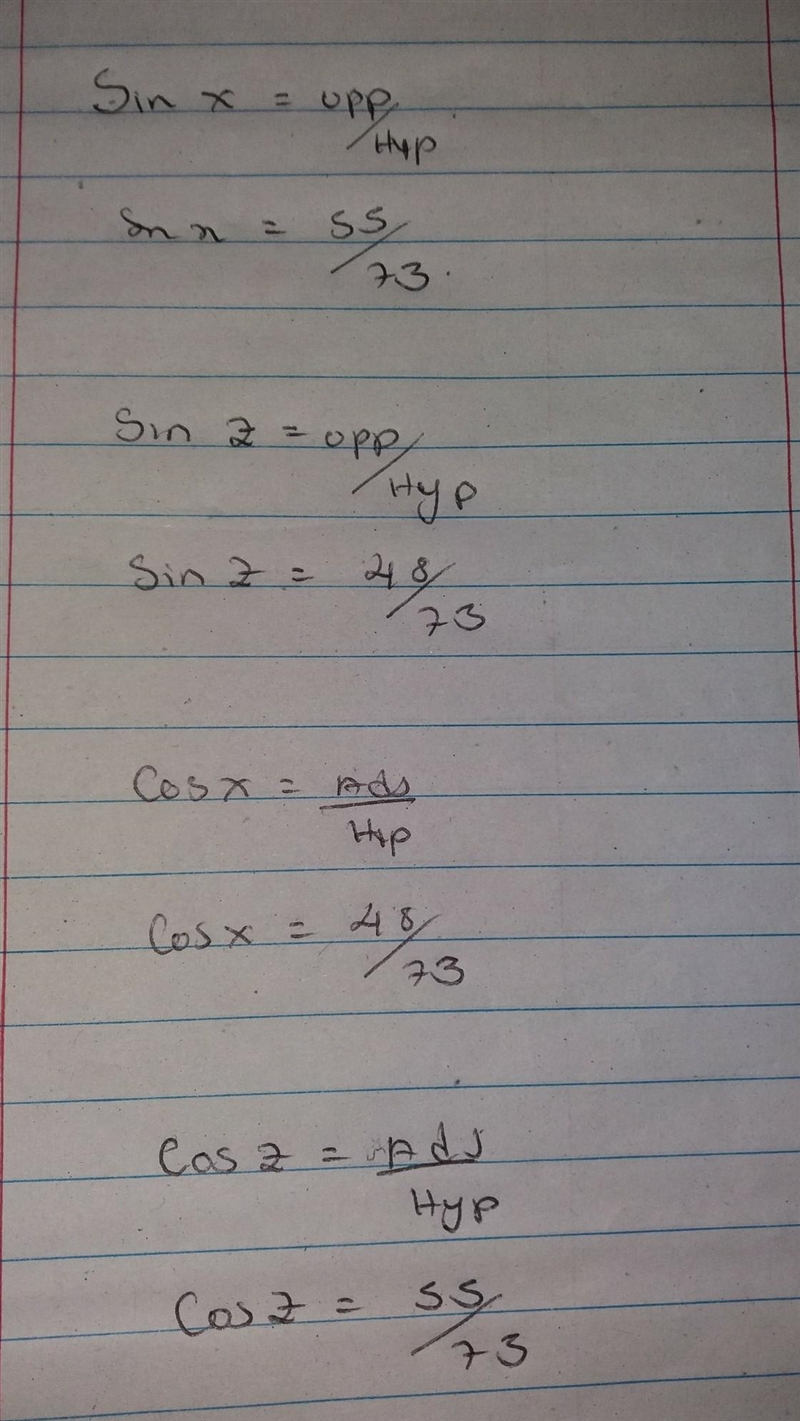 Sin x = opp/Hyp
Sin x = 55/73.
Sin Z = opp/Hyp
Sin Z = 48/73
Cos x = Adj/Hyp
Cos x = 48/73
Cos Z = Adj/Hyp
Cos Z = 55/73